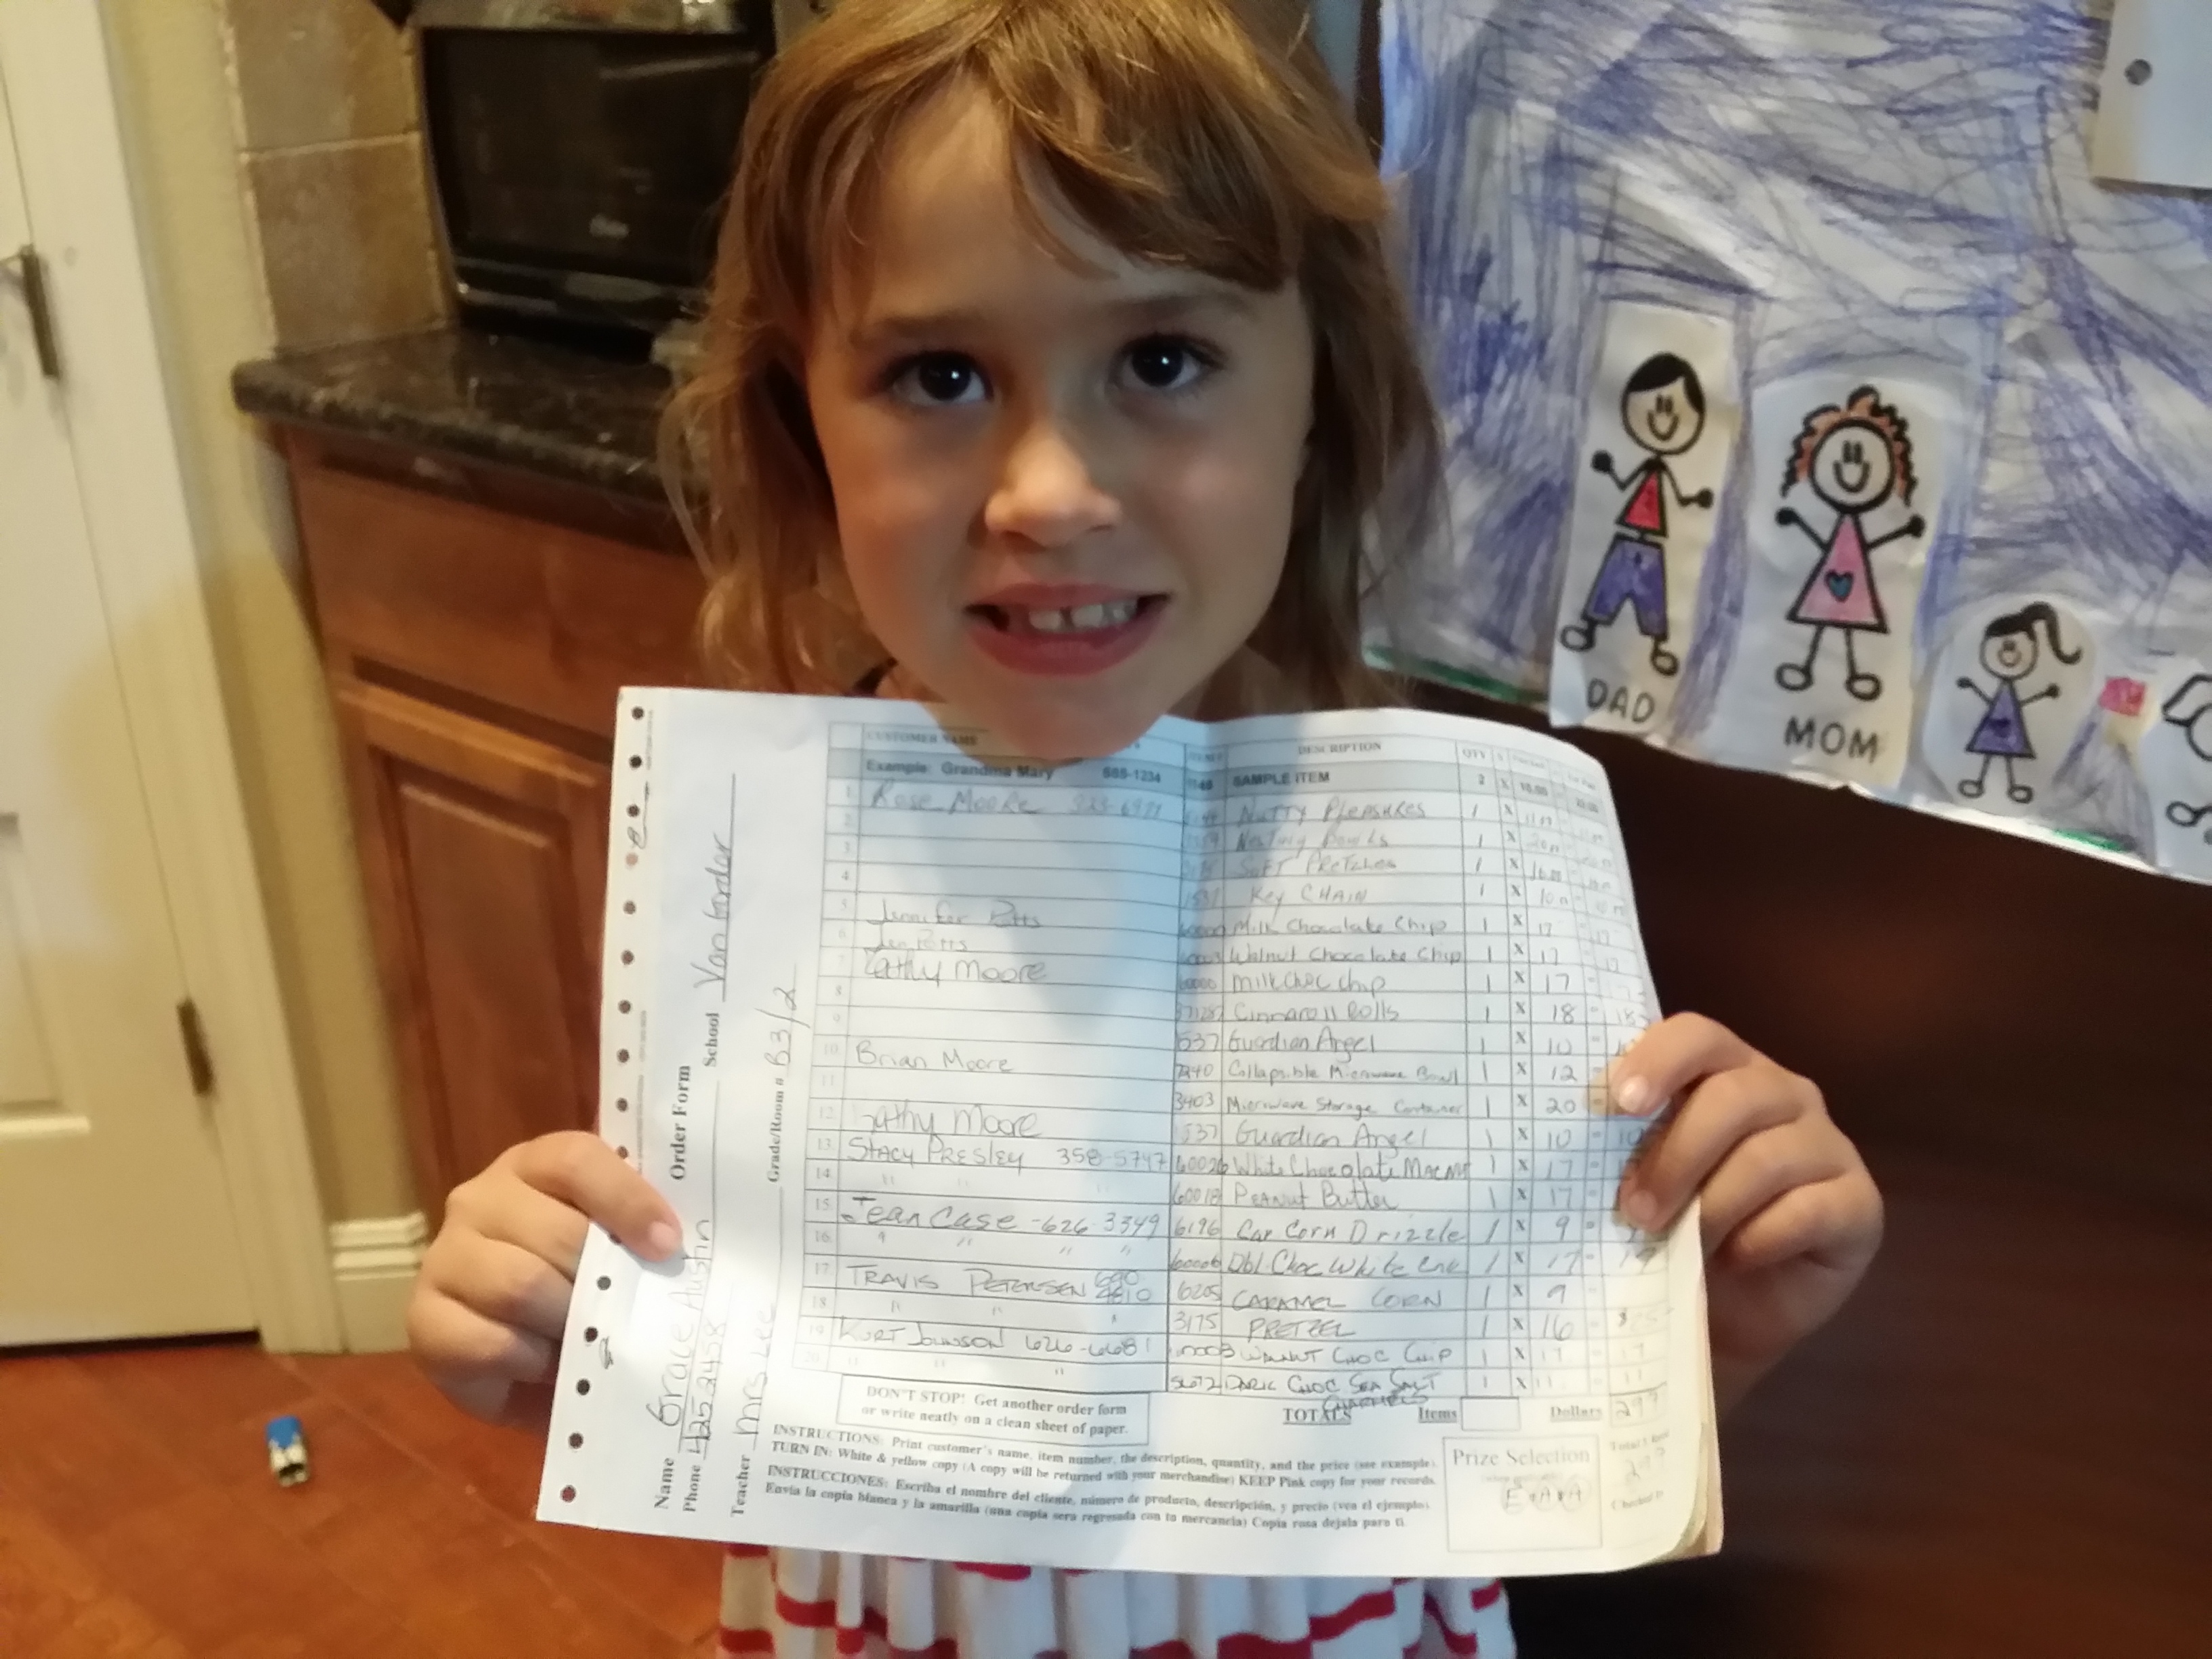 DAD
MOM
Order Form
Name Grace Austin
Phone 4252458
School Van Gorder
Teacher Mrs Lee
Grade/Room # B3/2
CUSTOMER NAME DESCRIPTION QTY
Example: Grandma Mary 555-1234 SAMPLE ITEM 2 X 10.00
1 Rose Moore Nutty Pleasures 1 X
2 Nesting Bowls 1 X
3 Soft Pretzles 1 X
4 Key CHAIN 1 X
5 Jennifer Potts Milk Chocolate Chip 1 X 17
6 Jen Potts Walnut Chocolate Chip 1 X 17
7 Kathy Moore Milk Choc Chip 1 X 17
8 Cinnaroll Rolls 1 X 18
9 1537 Guardian Angel 1 X 10
10 Brian Moore 7240 Collapsible Microwave Bowl 1 X 12
11 3403 Microwave Storage Container 1 X 20
12 Kathy Moore 1537 Guardian Angel 1 X 10
13 STACY PRESLEY 358-5747 60026 White Chocolate MACAM 1 X 17
14 " " " 60018 PEANUT Butter 1 X 17
15 Jean Case - 626-3349 6196 Car Corn Drizzle 1 X 9
16 " " " " 60006 Dbl Choc White Cnk 1 X 17
17 TRAVIS PETERSEN 690 4810 6205 CARAMEL CORN 1 X 9
18 " " " 3175 PRETZEL 1 X 16
19 KURT JOHNSON 626-6681 WALNUT CHOC CHIP 1 X 17
20 " " " DARK CHOC SEA SALT 1 X 11
CARAMELS
TOTALS Items Dollars 297
DON'T STOP! Get another order form
or write neatly on a clean sheet of paper.
INSTRUCTIONS: Print customer's name, item number, the description, quantity, and the price (see example).
TURN IN: White & yellow copy (A copy will be returned with your merchandise) KEEP Pink copy for your records.
INSTRUCCIONES: Escriba el nombre del cliente, número de producto, descripción, y precio (vea el ejemplo).
Envía la copia blanca y la amarilla (una copia sera regresada con tu mercancia) Copia rosa dejala para ti
Prize Selection